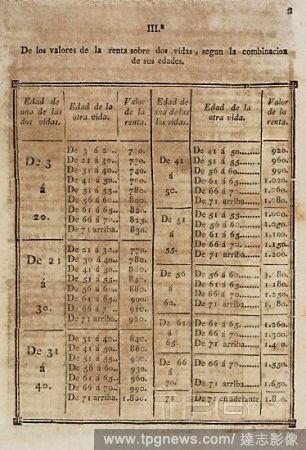 III.ª
De los valores de la renta sobre dos vidas, segun la combinacion
de sus edades.
Edad de una de las dos vidas.
Edad de la otra vida.
Valor de la renta.
Edad de una de las dos vidas.
Edad de la otra vida.
Valor de la renta.
De 3 á 20.
De 21 á 30.
De 31 á 40.
De 41 á 50.
De 51 á 55.
De 56 á 60.
De 61 á 65.
De 66 á 70.
De 31 á 40..... 740.
De 41 á 50...
De 51 á 55..... 780.
De 56 á 60..... 800.
De 66 á 70..... 825.
De 71 arriba. 830.
De 21 á 30..... 770.
De 30 á 40..... 780.
De 41 á 50..... 800.
De 56 á 60..... 880.
De 61 á 65..... 900.
De 71 arriba... 920.
De 31 á 40..... 840.
De 41 á 50..... 860.
De 51 á 55..... 900.
De 56 á 60..... 930.
De 61 á 65..... 960.
De 66 á 70..... 990.
De 71 arriba 1.800.
De 41 á 50...... 920.
De 51 á 55...... 960.
De 56 á 60...... 990.
De 61 á 65...... 1.020.
De 66 á 70...... 1.060.
De 71 arriba..... 1.080.
De 51 á 55...... 1.000.
De 56 á 60...... 1.050.
De 61 á 65...... 1.100.
De 66 á 70...... 1.150.
De 71 arriba..... 1.200.
De 56 á 60......
De 61 á 65......
De 66 á 70......
De 71 arriba.....
De 61 á 65...... 1.260.
De 66 á 70...... 1.300.
De 71 arriba.....
De 66 á 70...... 1.550.
De 71 arriba..... 1.650.
71
De 71 en adelante 1.800.
TPG
www.tpgnews.com/ 達志影像